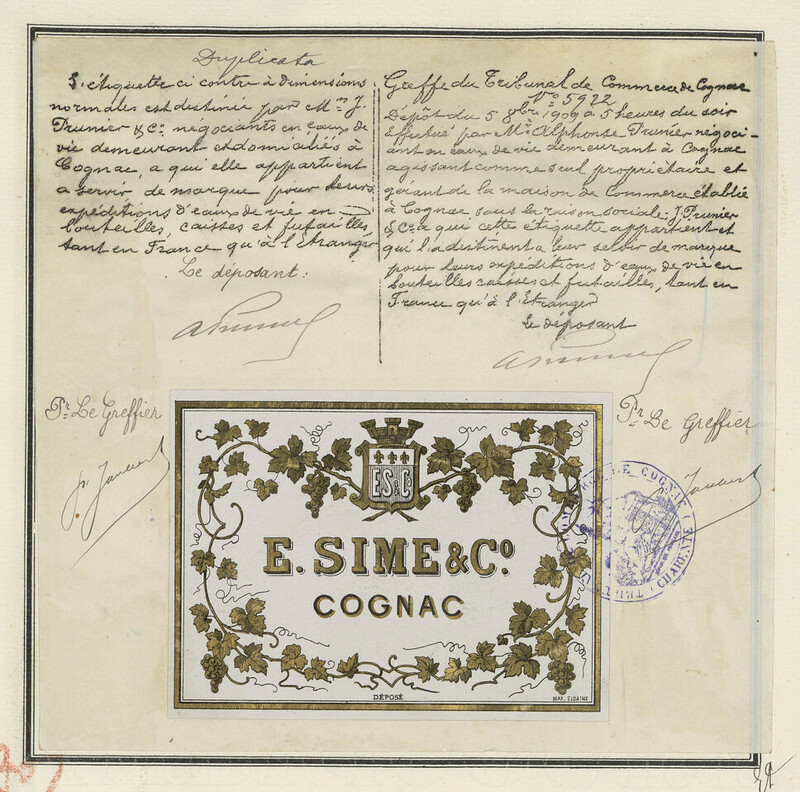 Duplicata
L'étiquette ci contre à dimensions
normales est destinée par Mrs J.
Prunier & Cie négociants en eaux de
vie demeurant et domiciliés à
Cognac, a qui elle appartient
a servir de marque pour leurs
expéditions d'eaux de vie en
bouteilles, caisses et futailles,
tant en France qu'à l'Etranger
Le déposant:
Greffe du Tribunal de Commerce de Cognac
No 5922
Dépôt du 5 9bre 1909 à 5 heures du soir
Effectué par Mr Alphonse Prunier négoci-
ant en eaux de vie demeurant à Cognac
agissant comme seul propriétaire et
gérant de la maison de Commerce établie
à Cognac sous la raison sociale: J. Prunier
& Cie a qui cette étiquette appartient et
qui l'adestinent a leur servir de marque
pour leurs expéditions d'eaux de vie en
bouteilles caisses et futailles, tant en
France qu'à l'Etranger
Le déposant
Pr Le Greffier
Pr Le Greffier
ES&Co
E. SIME & Co
COGNAC
DÉPOSÉ
MAX. SIDAINE